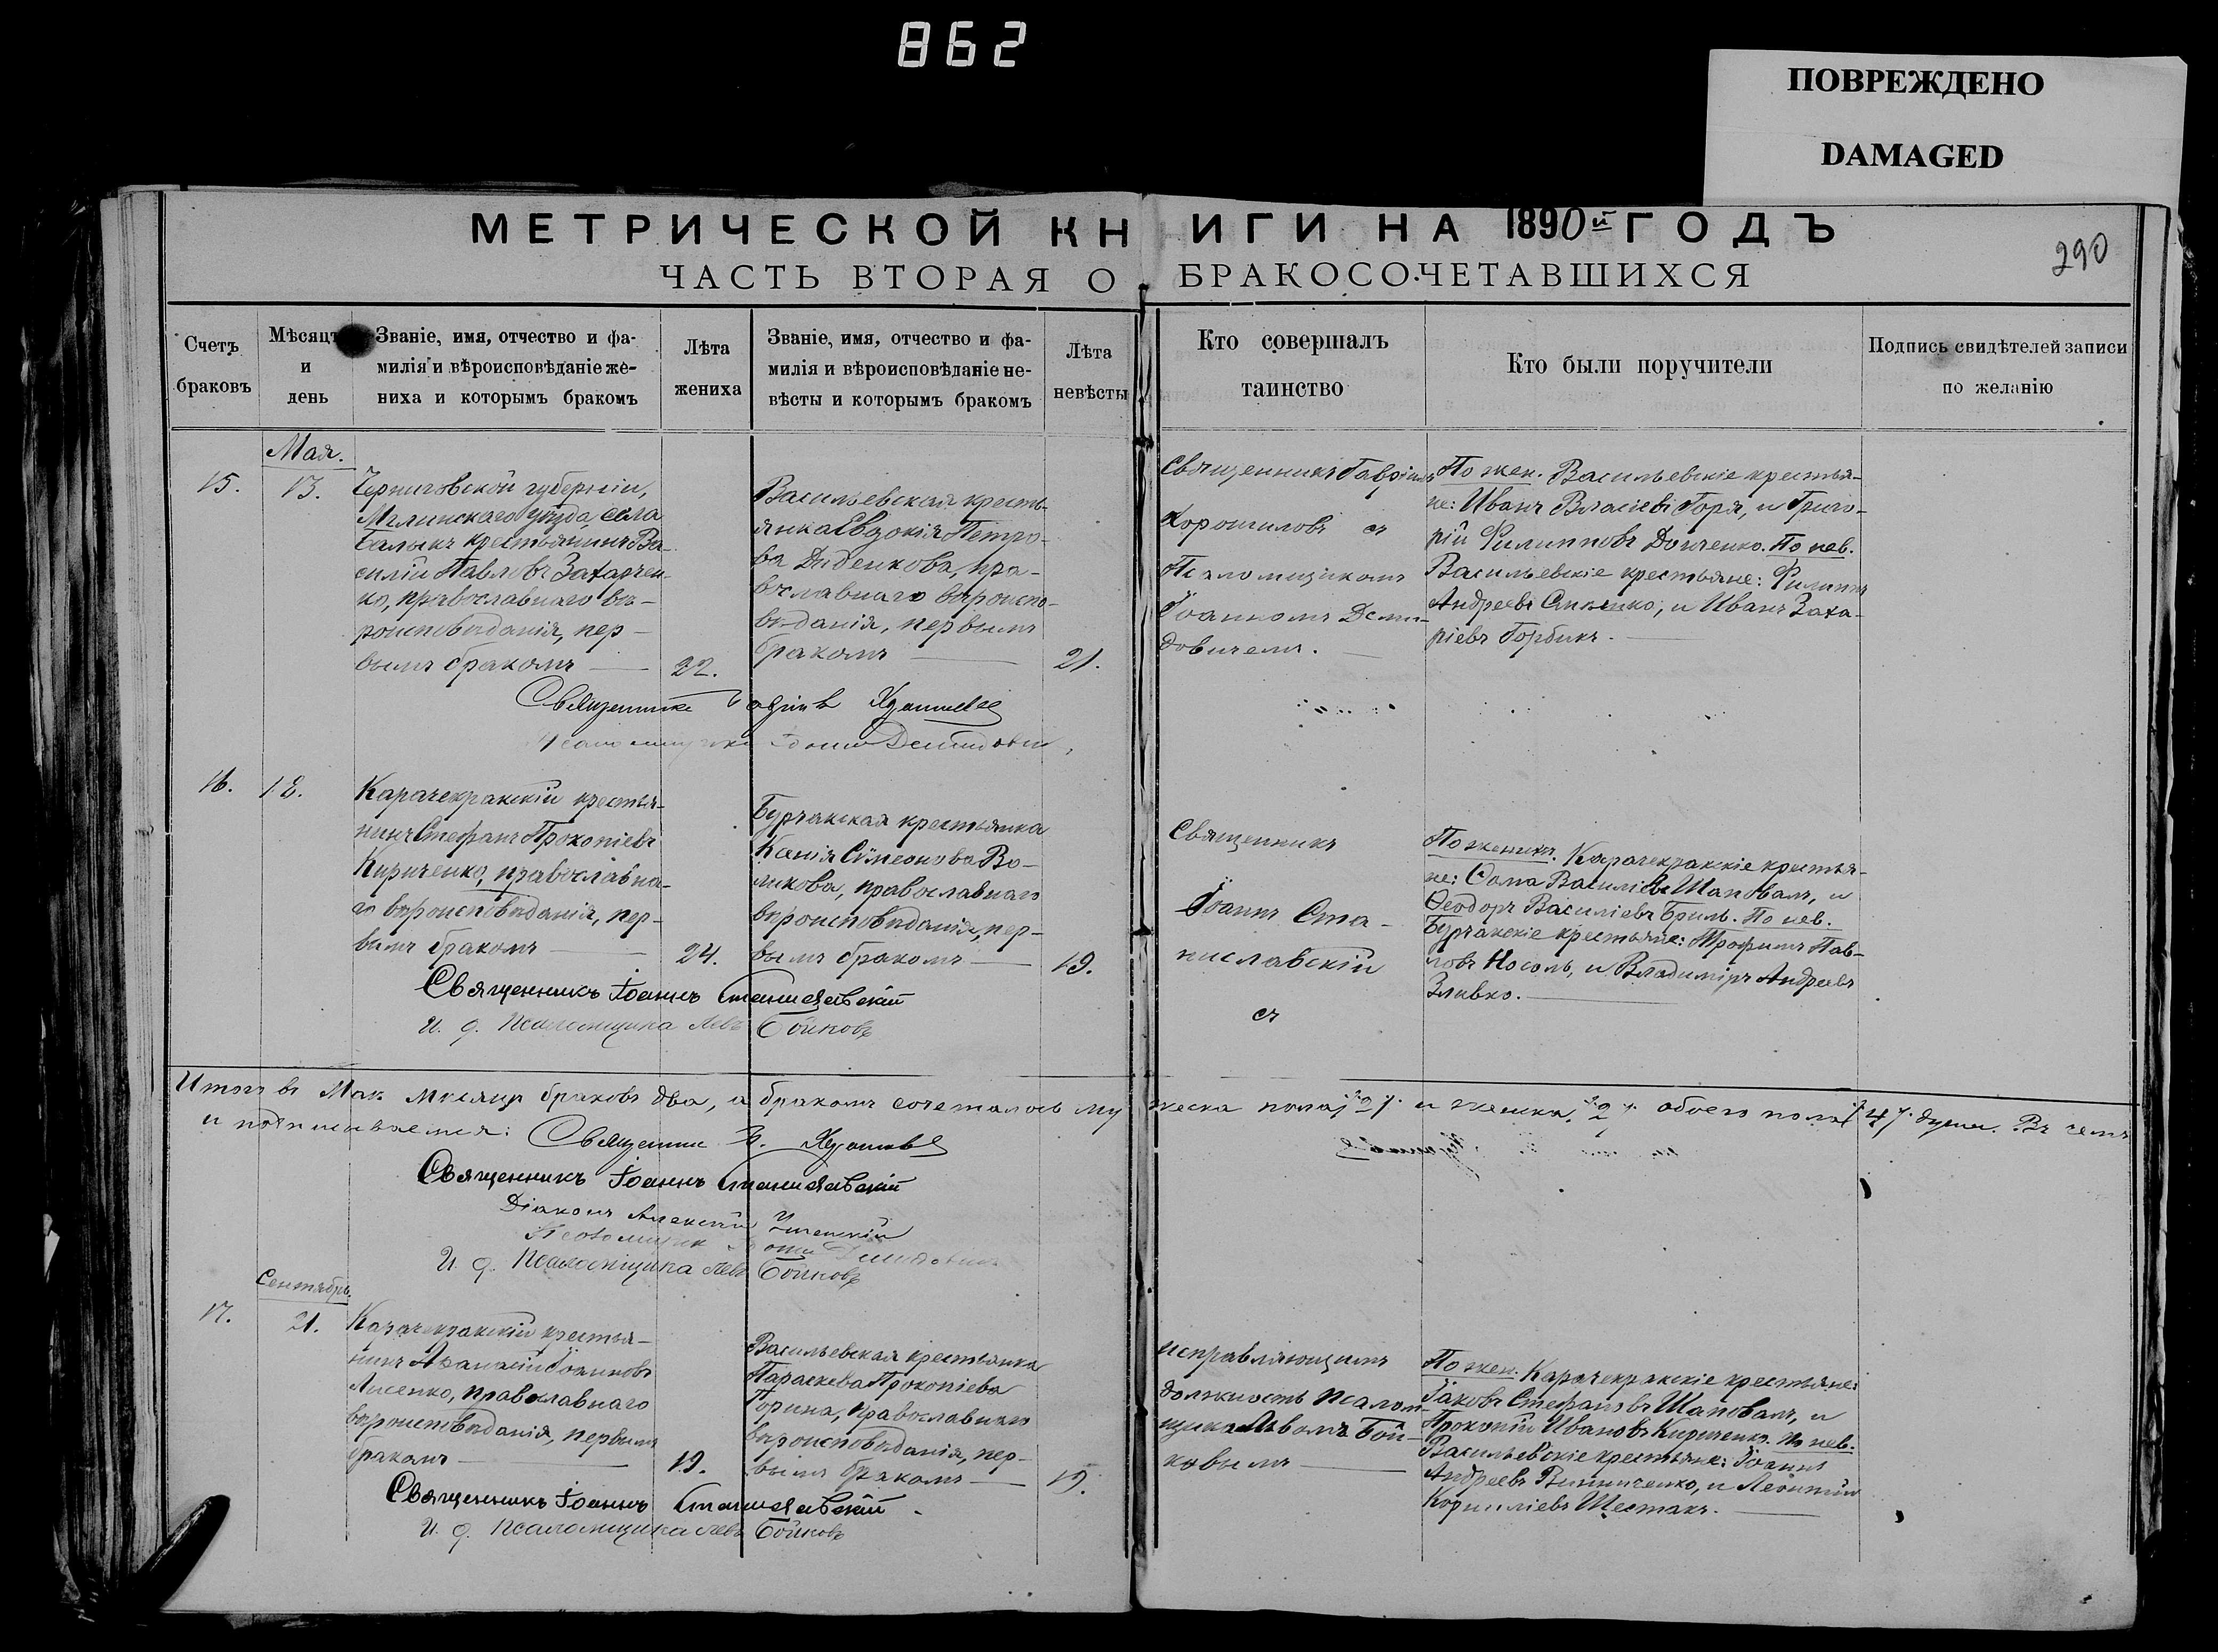 862
ПОВРЕЖДЕНО
DAMAGED
МЕТРИЧЕСКОЙ КНИГИ НА 1890й ГОДЪ
290
ЧАСТЬ ВТОРАЯ О БРАКОСОЧЕТАВШИХСЯ
Счетъ
браковъ
Мѣсяцъ
и
день
Званіе, имя, отчество и фа-
милія и вѣроисповѣданіе же-
ниха и которымъ бракомъ
Лѣта
жениха
Званіе, имя, отчество и фа-
милія и вѣроисповѣданіе не-
вѣсты и которымъ бракомъ
Лѣта
невѣсты
Кто совершалъ
таинство
Кто были поручители
Подпись свидѣтелей записи
по желанію
Мая.
15.
13.
Черниговской губерніи,
Мглинскаго уѣзда, села
крестьянинъ Ва-
силій Павловъ Захарчен-
ко, православнаго вѣ-
роисповѣданія, пер-
вымъ бракомъ
22.
Васильевская кресть-
янка Евдокія Петро-
ва Диденкова, пра-
вославнаго вѣроиспо-
вѣданія, первымъ
бракомъ
21.
Священникъ Гавріилъ
Хорошиловъ съ
Псаломщикомъ
Іоанномъ Деми-
довичемъ.
По жен. Васильевскіе крестья-
не: Иванъ Власіевъ Горя, и Григо-
рій Филипповъ Донченко. По нев.
Васильевскіе крестьяне: Филиппъ
Андреевъ и Иванъ Заха-
ріевъ Горбикъ.
Священникъ
16.
18.
Карачекракскій крестья-
нинъ Стефанъ Прокопіевъ
Кириченко, православна-
го вѣроисповѣданія, пер-
вымъ бракомъ
24.
Бурчакская крестьянка
Ксенія Симеонова Во-
ликова, православнаго
вѣроисповѣданія, пер-
вымъ бракомъ
19.
Священникъ
Іоаннъ Ста-
ниславскій
съ
По жениху. Карачекракскіе крестья-
не: Ѳома Василіевъ Шаповалъ, и
Ѳеодоръ Василіевъ Бриль. По нев.
Бурчакскіе крестьяне: Трофимъ Пав-
ловъ Носоль, и Владиміръ Андреевъ
Зливко.
Священникъ Іоаннъ Станиславскій
И. д. Псаломщика Левъ Бойковъ
Итого въ Маѣ мѣсяцѣ браковъ два, а бракомъ сочеталось мужеска пола "2", и женска, "2", обоего пола "4" души. Въ чемъ
и подписываемся: Священникъ Г. Хорошиловъ
Священникъ Іоаннъ Станиславскій
Діаконъ Алексій
И. д. Псаломщика Левъ Бойковъ
Сентябрь.
17.
21.
Карачекракскій крестья-
нинъ Аѳанасій Іоанновъ
Лисенко, православнаго
вѣроисповѣданія, первымъ
бракомъ
19.
Васильевская крестьянка
Параскева Прокопіева
Горина, православнаго
вѣроисповѣданія, пер-
вымъ бракомъ
19.
исправляющимъ
должность Псалом-
щика Львомъ Бой-
ковымъ
По жен. Карачекракскіе крестьяне:
Іаковъ Стефановъ Шаповалъ, и
Прокопій Ивановъ Кириченко. По нев.
Васильевскіе крестьяне: Іоаннъ
Андреевъ Винниченко, и Леонтій
Корниліевъ Шестакъ.
Священникъ Іоаннъ Станиславскій
И. д. Псаломщика Левъ Бойковъ